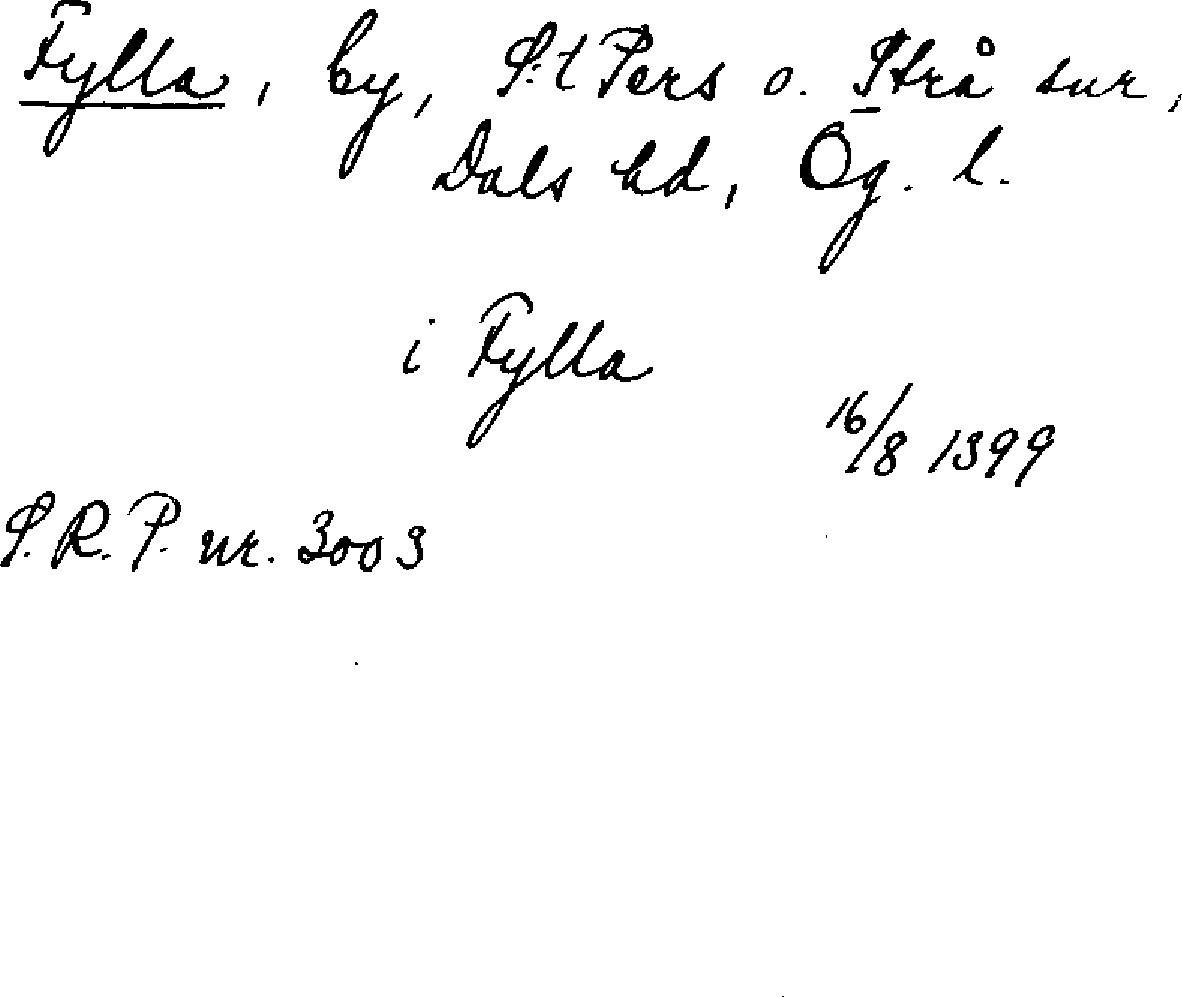 Fylla, by, S:t Pers o. Strå snr,
Dals hd, Ög. l.
i Fylla
16/8 1399
S.R.P. nr. 3003